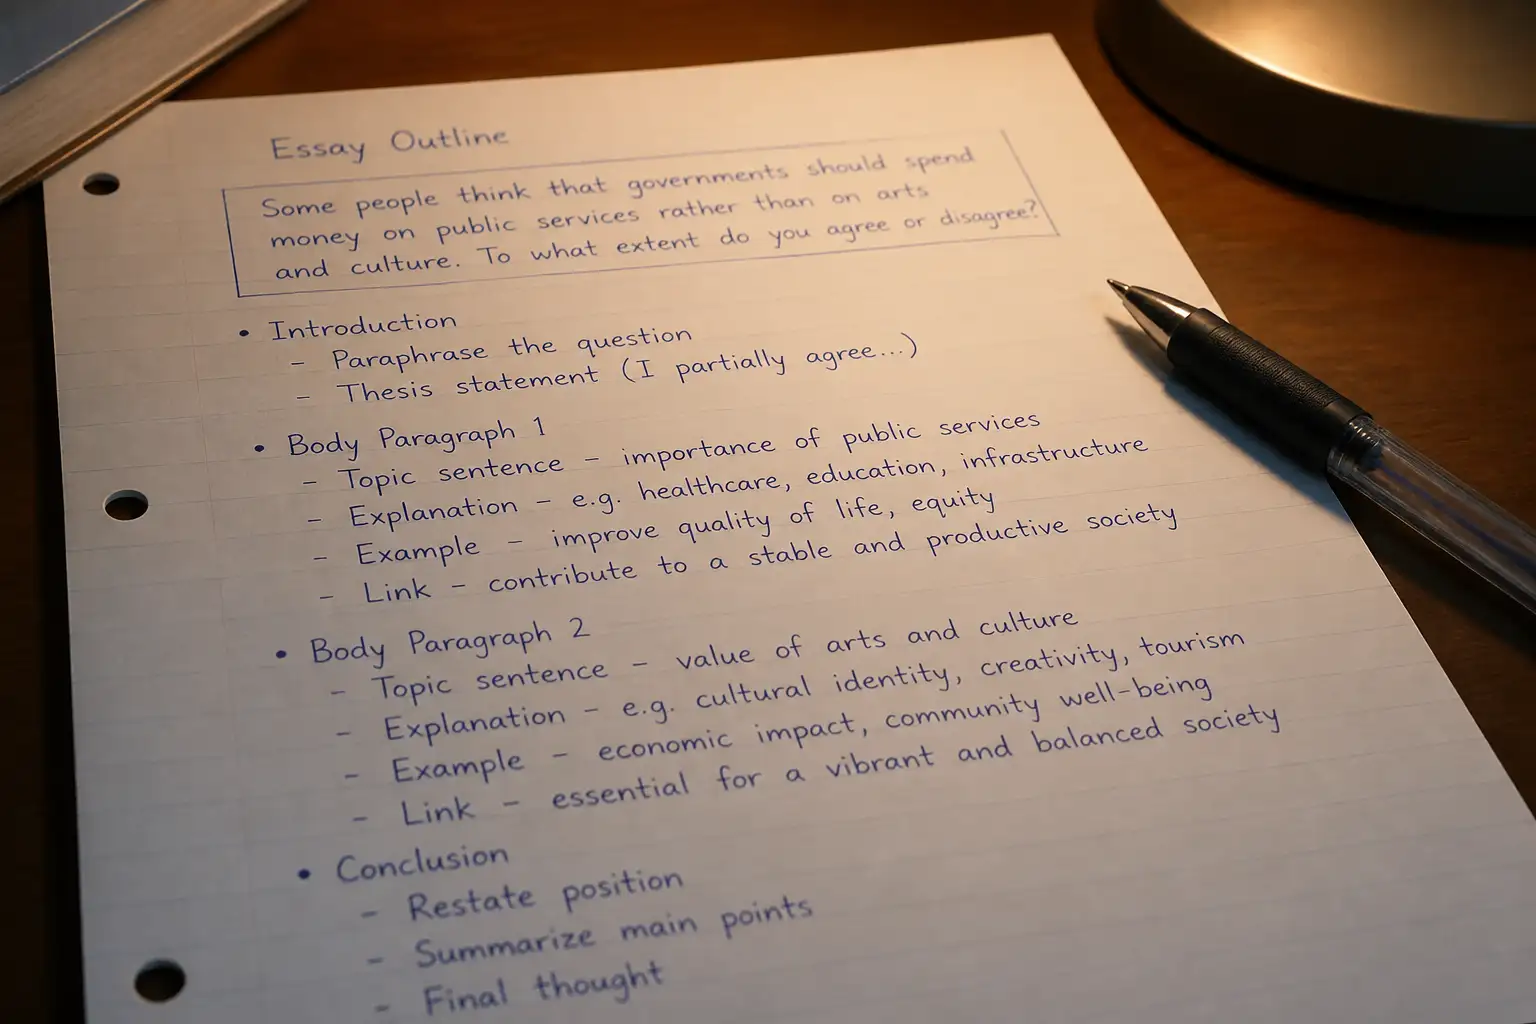 Essay Outline
Some people think that governments should spend
money on public services rather than on arts
and culture. To what extent do you agree or disagree?
• Introduction
- Paraphrase the question
- Thesis statement (I partially agree...)
• Body Paragraph 1
- Topic sentence – importance of public services
- Explanation – e.g. healthcare, education, infrastructure
- Example – improve quality of life, equity
- Link – contribute to a stable and productive society
• Body Paragraph 2
- Topic sentence – value of arts and culture
- Explanation – e.g. cultural identity, creativity, tourism
- Example – economic impact, community well-being
- Link – essential for a vibrant and balanced society
• Conclusion
- Restate position
- Summarize main points
- Final thought